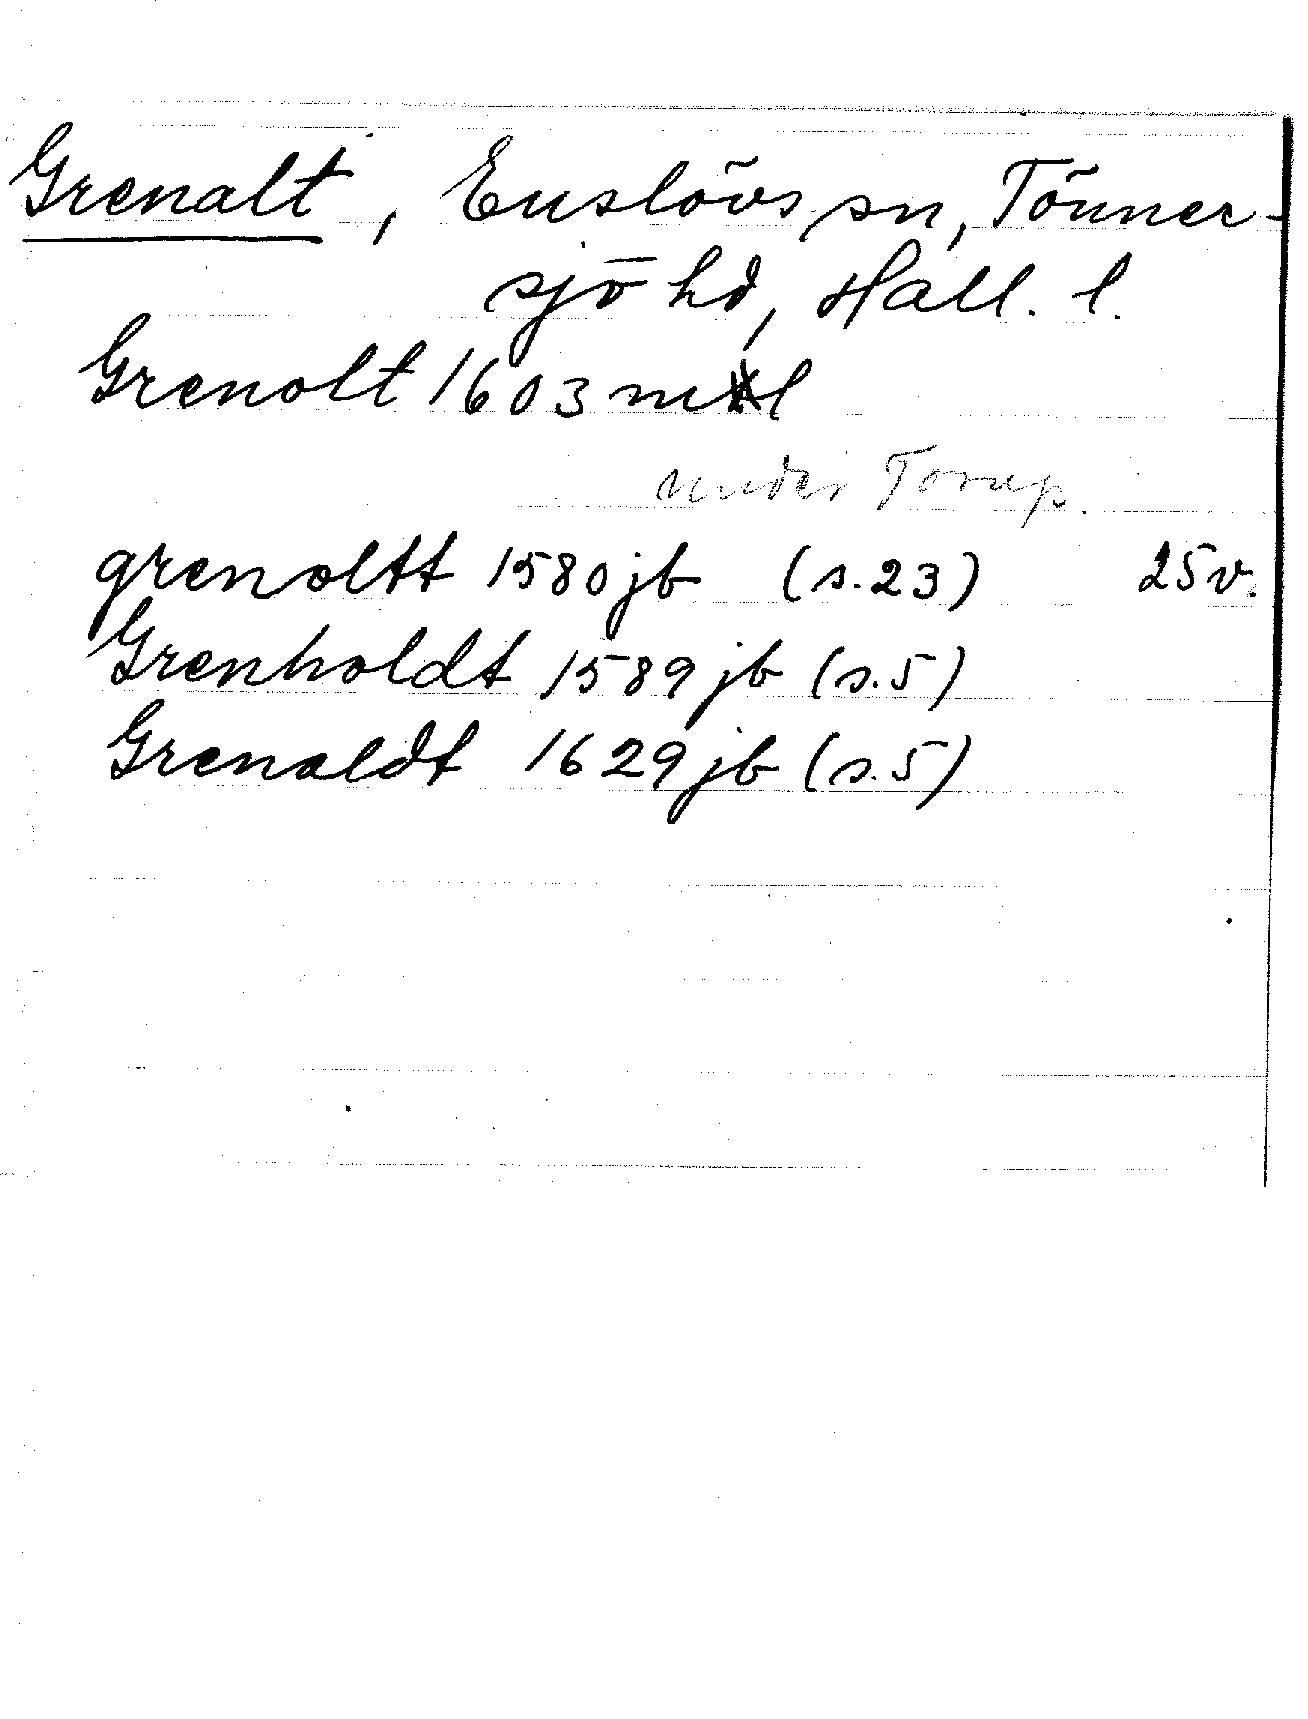 Grenalt, Enslövs sn, Tönner-
sjö hd, Hall. l.
Grenolt 1603 mtl
under Torup.
grenoltt 1580 jb (s. 23) 25 v.
Grenholdt 1589 jb (s. 5)
Grenaldt 1629 jb (s. 5)